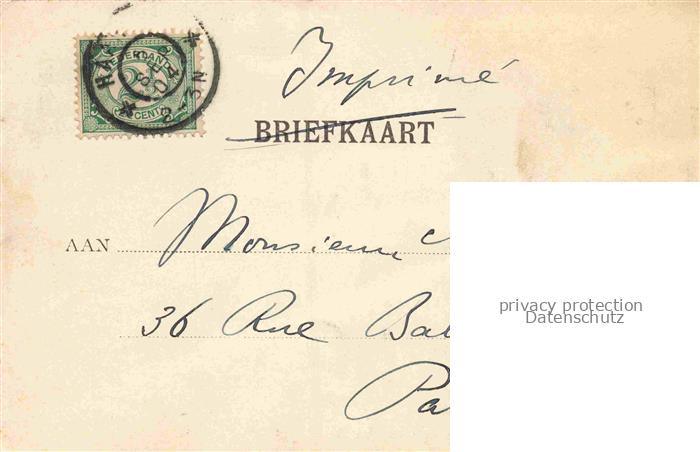 NEDERLAND
2½
CENT
Imprimé
BRIEFKAART
AAN Monsieur
36 Rue Bal
Pa
privacy protection
Datenschutz